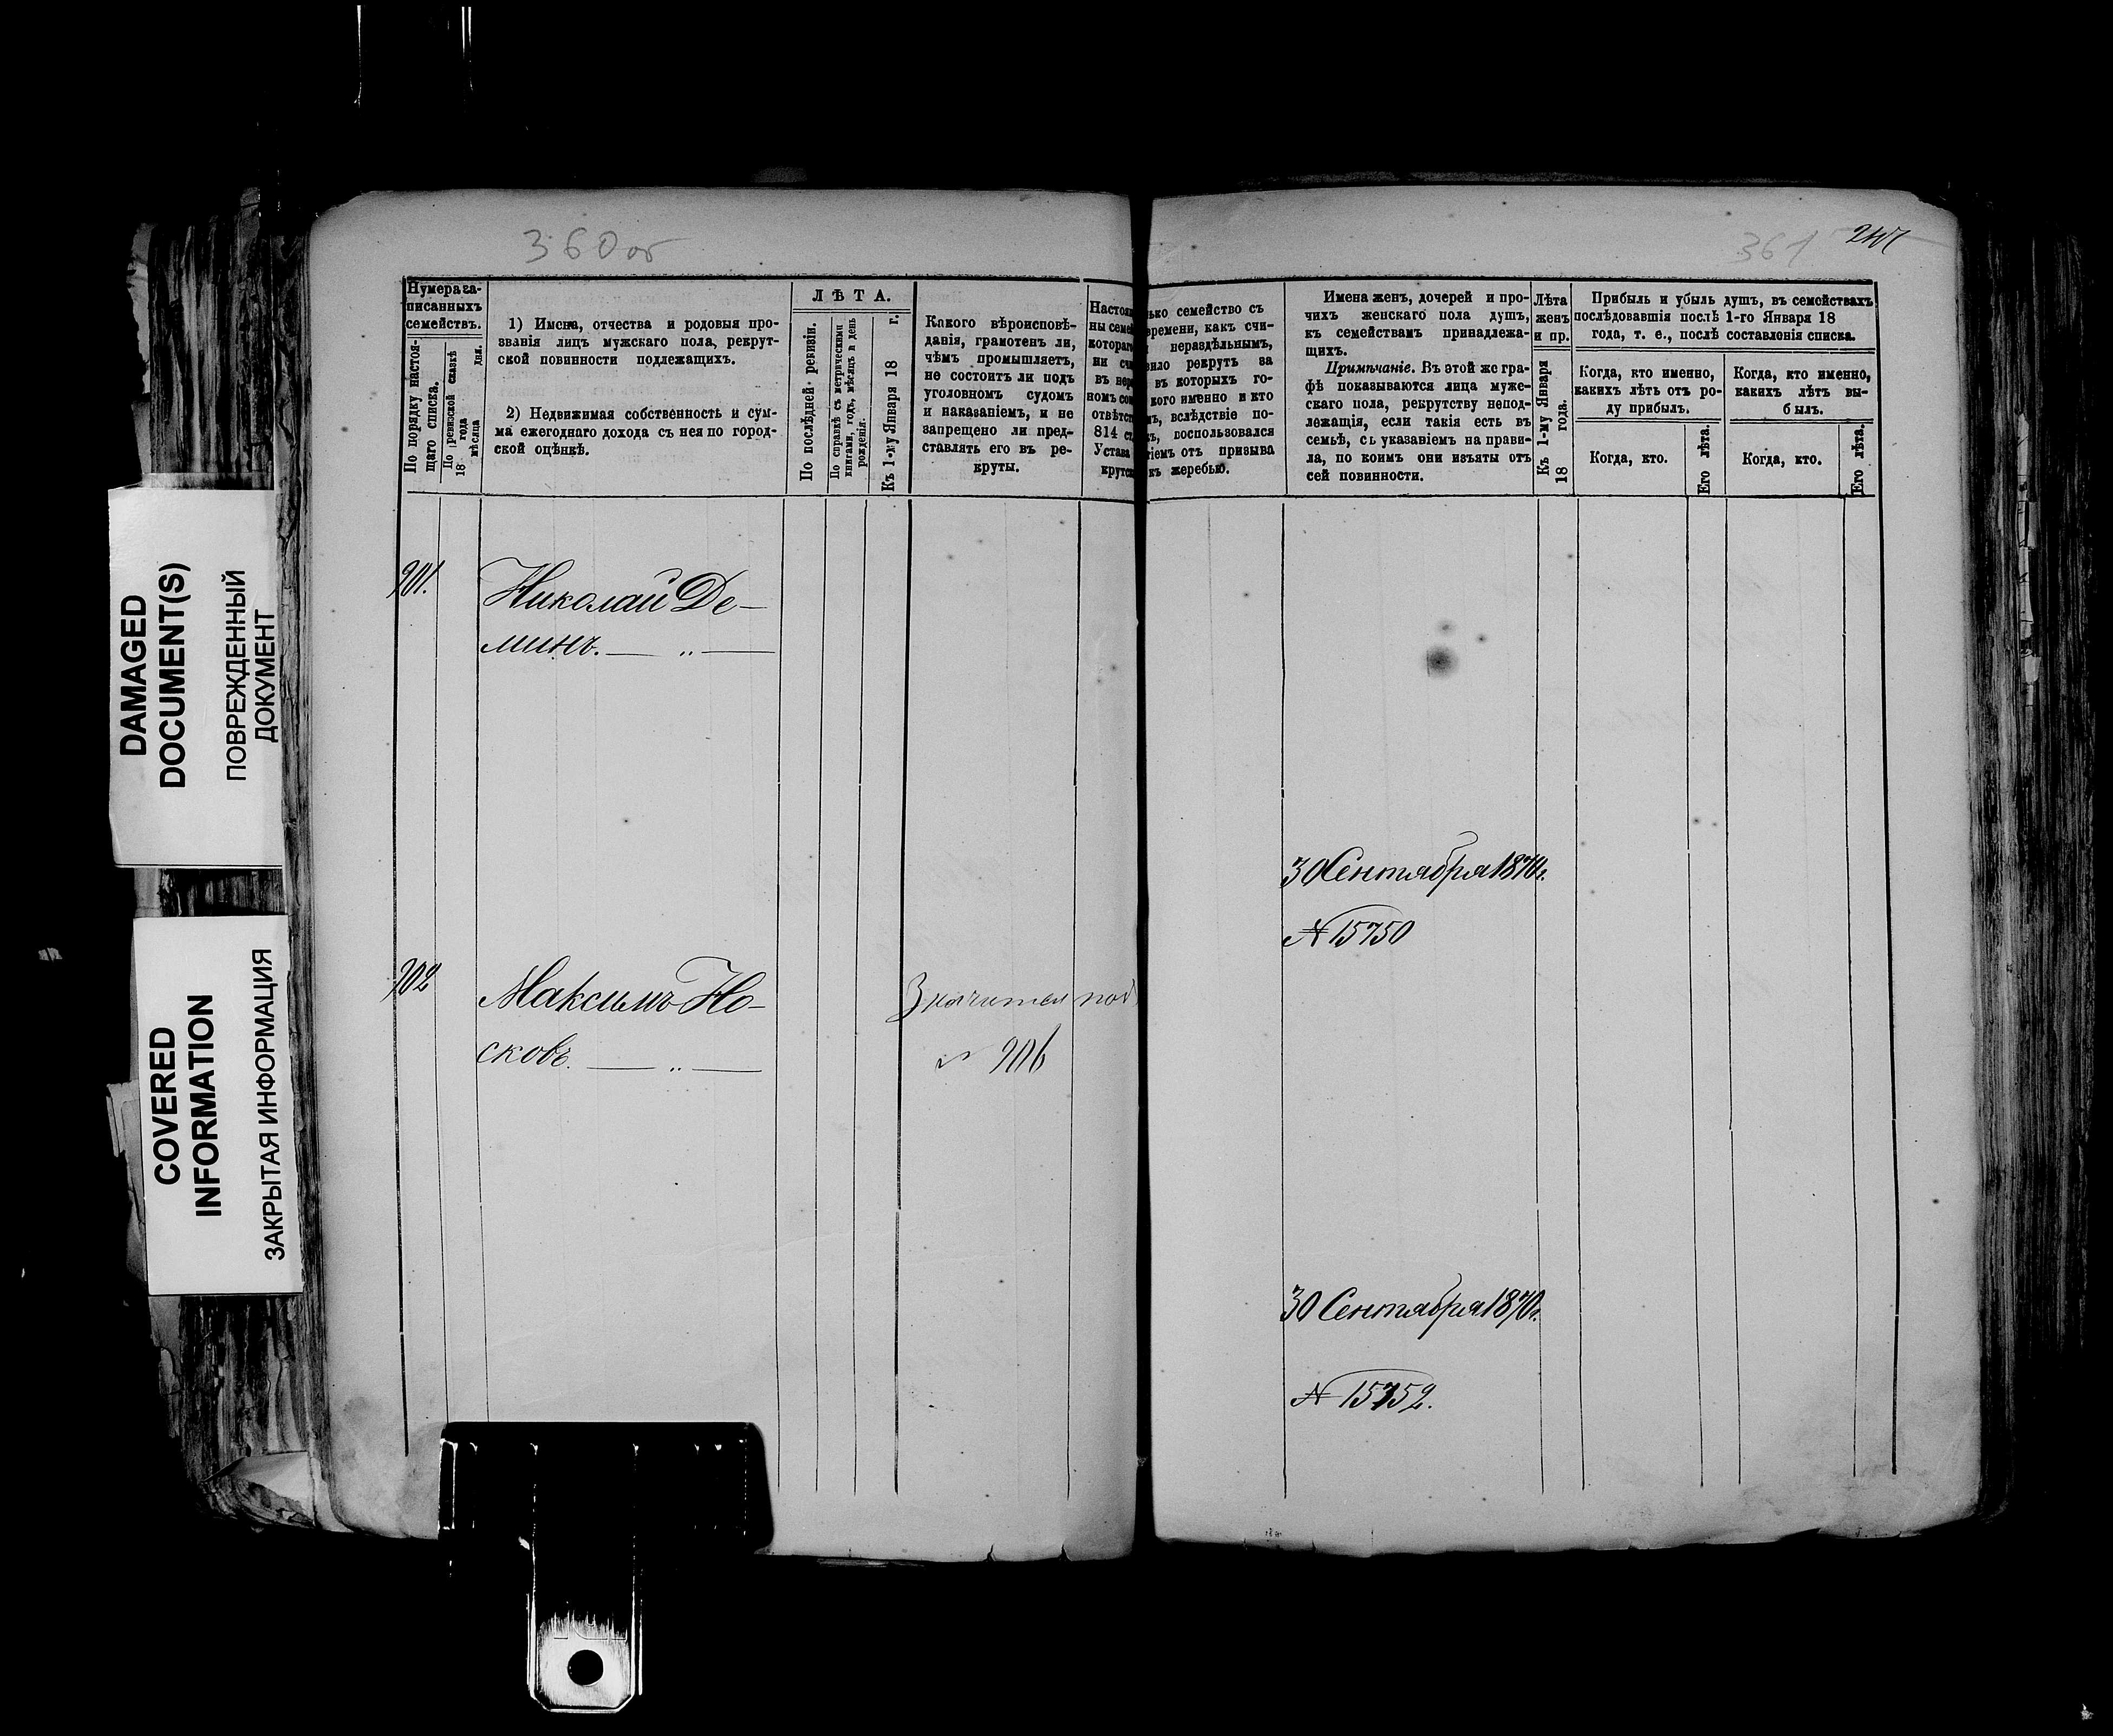 360 об
361
DAMAGED
DOCUMENT(S)
ПОВРЕЖДЕННЫЙ
ДОКУМЕНТ
COVERED
INFORMATION
ЗАКРЫТАЯ ИНФОРМАЦИЯ
Нумера за-
писанныхъ
семействъ.
По порядку настоя-
щаго списка.
По ревизской сказкѣ
18 года
мѣсяца дня.
1) Имена, отчества и родовыя про-
званія лицъ мужскаго пола, рекрут-
ской повинности подлежащихъ.
2) Недвижимая собственность и сум-
ма ежегоднаго дохода съ нея по город-
ской оцѣнкѣ.
ЛѢТА.
По послѣдней ревизіи.
По справкѣ съ метрическими
книгами, годъ, мѣсяцъ и день
рожденія.
Къ 1-му Января 18 г.
Какого вѣроисповѣ-
данія, грамотенъ ли,
чѣмъ промышляетъ,
не состоитъ ли подъ
уголовномъ судомъ
и наказаніемъ, и не
запрещено ли пред-
ставлять его въ ре-
круты.
Настоя
ны семе
котораг
ни сч
въ нер
номъ со
отвѣтс
814 ст
Устава
крутск
ько семейство съ
времени, какъ счи-
нераздѣльнымъ,
вило рекрутъ за
въ которыхъ го-
кого именно и кто
мъ, вслѣдствіе по-
къ, воспользовался
тіемъ отъ призыва
къ жеребью.
Имена женъ, дочерей и про-
чихъ женскаго пола душъ,
къ семействамъ принадлежа-
щихъ.
Примѣчаніе. Въ этой же гра-
фѣ показываются лица муже-
скаго пола, рекрутству непод-
лежащія, если такія есть въ
семьѣ, съ указаніемъ на прави-
ла, по коимъ они изъяты отъ
сей повинности.
Лѣта
женъ
и пр.
Къ 1-му Января
18 года.
Прибыль и убыль душъ, въ семействахъ
послѣдовавшія послѣ 1-го Января 18
года, т. е., послѣ составленія списка.
Когда, кто именно,
какихъ лѣтъ отъ ро-
ду прибылъ.
Когда, кто именно,
какихъ лѣтъ вы-
былъ.
Когда, кто.
Его лѣта.
Когда, кто.
Его лѣта.
901.
Николай Де-
минъ. — „ —
30 Сентября 1870 г.
№ 15750
902
Максимъ Но-
сковъ. — „ —
Значится под
№ 906
30 Сентября 1870 г.
№ 15752.